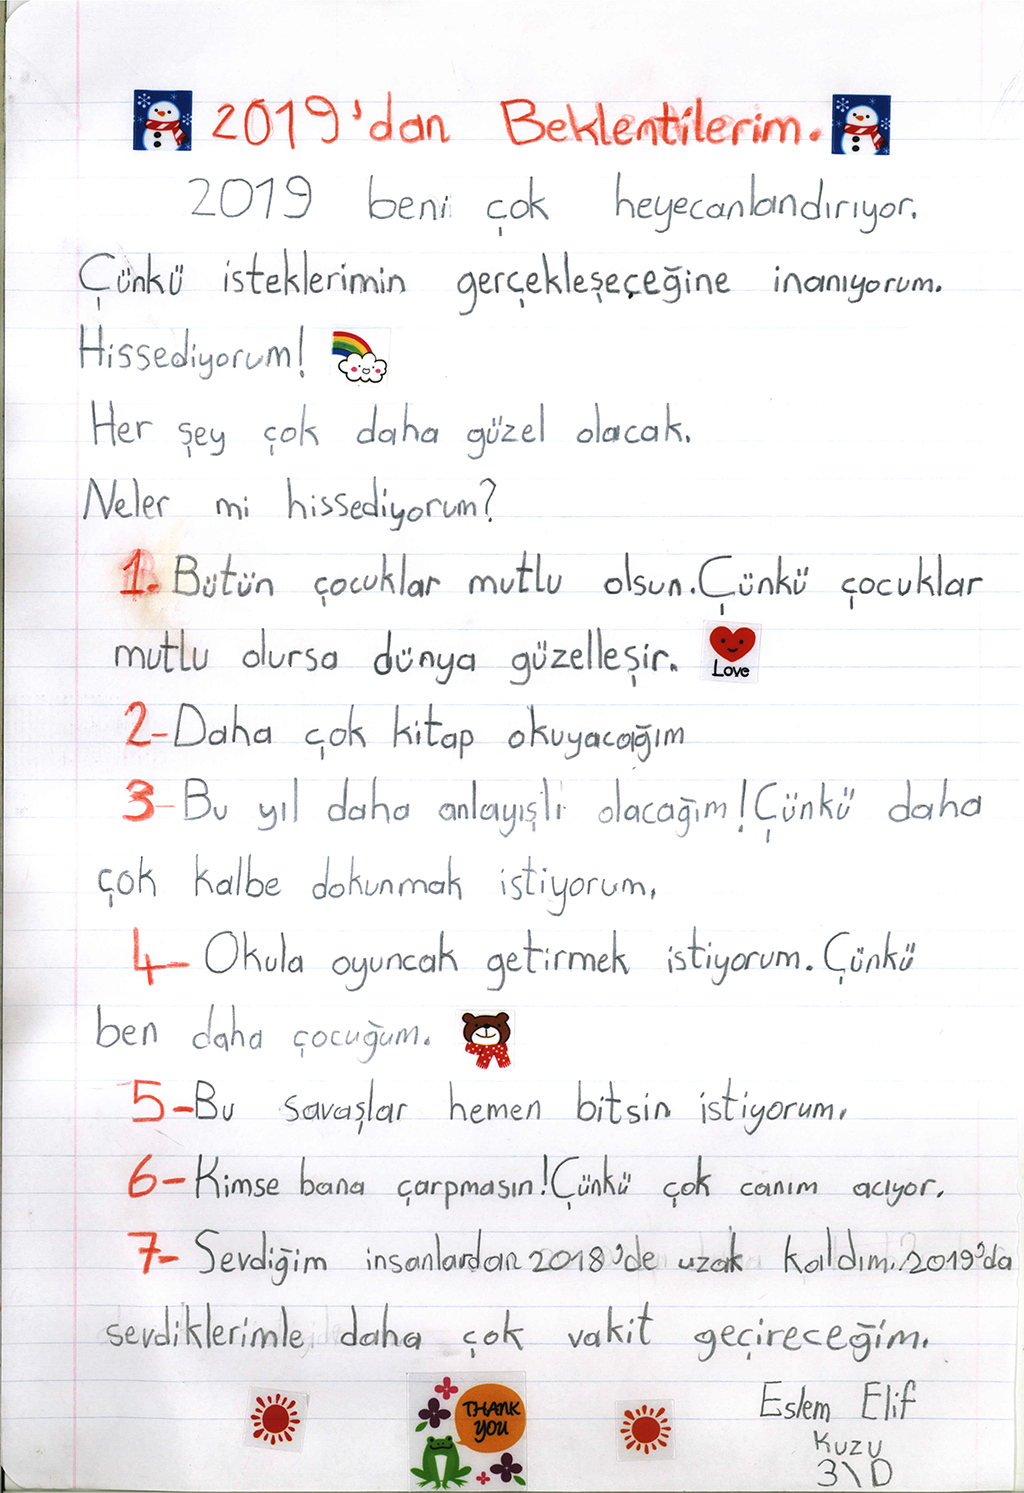 2019'dan Beklentilerim.
2019 beni çok heyecanlandırıyor.
Çünkü isteklerimin gerçekleşeçeğine inanıyorum.
Hissediyorum!
Her şey çok daha güzel olacak.
Neler mi hissediyorum?
1. Bütün çocuklar mutlu olsun. Çünkü çocuklar
mutlu olursa dünya güzelleşir.
Love
2- Daha çok kitap okuyacağım
3- Bu yıl daha anlayışlı olacağım! Çünkü daha
çok kalbe dokunmak istiyorum.
4- Okula oyuncak getirmek istiyorum. Çünkü
ben daha çocuğum.
5- Bu savaşlar hemen bitsin istiyorum.
6- Kimse bana çarpmasın! Çünkü çok canım acıyor.
7- Sevdiğim insanlardan 2018'de uzak kaldım. 2019'da
sevdiklerimle daha çok vakit geçireceğim.
THANK
YOU
Eslem Elif
Kuzu
3\D